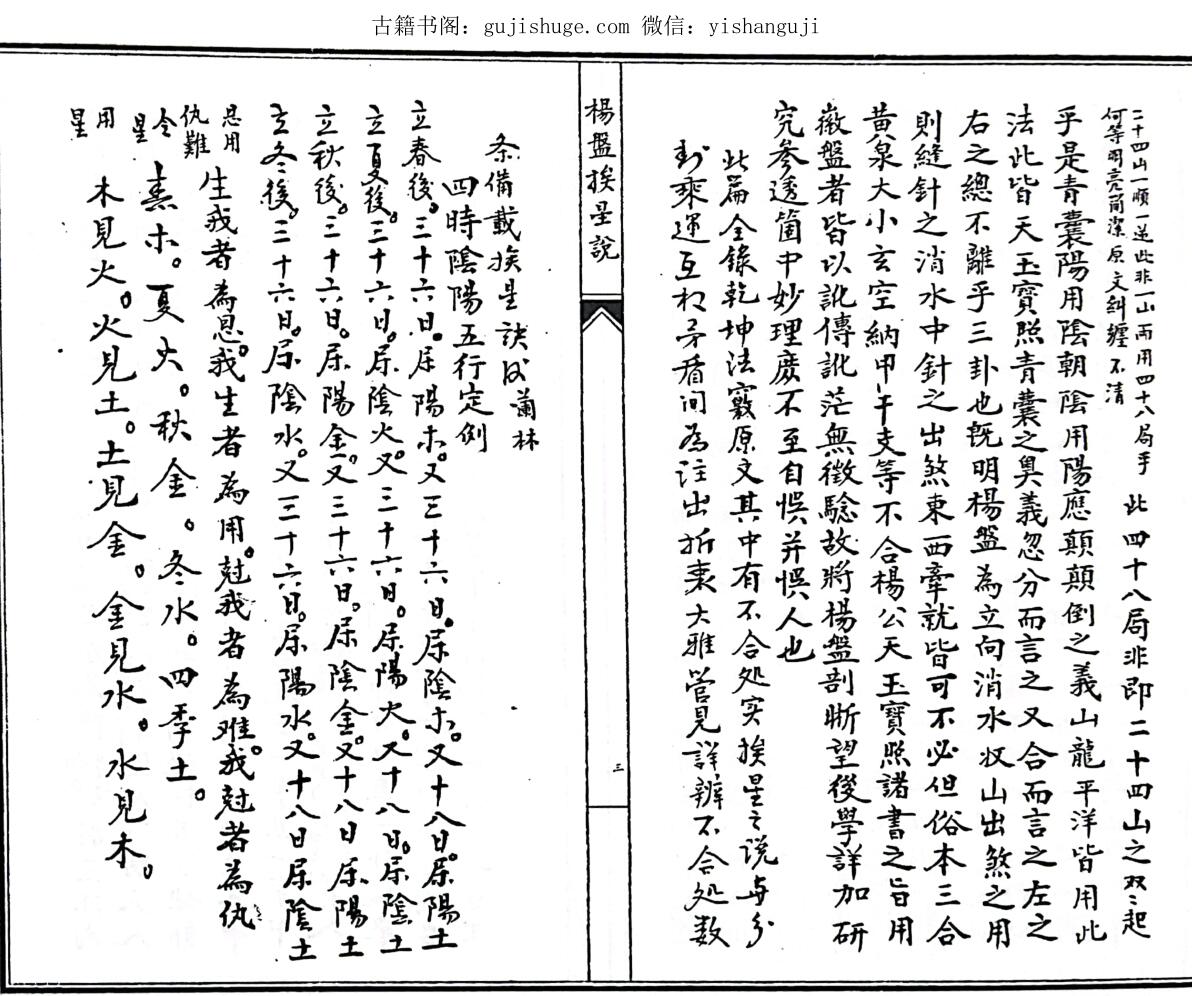 古籍书阁：gujishuge.com 微信：yishanguji
二十四山一順一逆此非一山而用四十八局乎
何等明亮簡潔原文糾纏不清
此四十八局非即二十四山之双二起
乎是青囊陽用陰朝陰用陽應顛顛倒之義山龍平洋皆用此
法此皆天玉寶照青囊之奥義忽分而言之又合而言之左之
右之總不離乎三卦也旣明楊盤為立向消水收山出煞之用
則縫針之消水中針之出煞東西牽就皆可不必但俗本三合
黄泉大小玄空納甲干支等不合楊公天玉寶照諸書之旨用
徽盤者皆以訛傳訛茫無徵驗故將楊盤剖晰望後學詳加研
究參透箇中妙理庶不至自悞并悞人也
此篇全錄乾坤法竅原文其中有不合処实挨星之说与分
針乘運互相矛盾间為註出折衷大雅管見詳辨不合処数
楊盤挨星說
三
条備載挨星訣後蘭林
四時陰陽五行定例
立春後。三十六日。屬陽木。又三十六日。屬陰木。又十八日。屬陽土
立夏後。三十六日。屬陰火。又三十六日。屬陽火。又十八日。屬陰土
立秋後。三十六日。屬陽金。又三十六日。屬陰金。又十八日屬陽土
立冬後。三十六日。屬陰水。又三十六日。屬陽水。又十八日屬陰土
恩用
仇難
生我者為恩。我生者為用。尅我者為难。我尅者為仇
令
星
春木。夏火。秋金。冬水。四季土。
用
星
木見火。火見土。土見金。金見水。水見木。